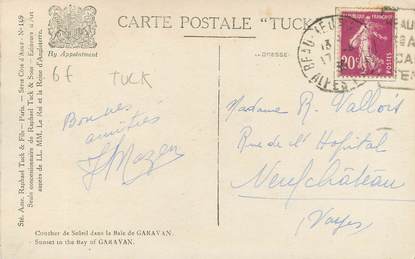 CARTE POSTALE "TUCK"
By Appointment
ADRESSE
6f TUCK
Sté. Ame. Raphael Tuck & Fils - Paris. - Série Côte d'Azur - No 149
Seuls concessionnaire de Raphael Tuck & Sons - Editeurs d'Art
auprès de LL. MM. Le Roi et la Reine d'Angleterre.
Bonnes
amitiés
Coucher de Soleil dans la Baie de GARAVAN.
Sunset in the Bay of GARAVAN.
20c
POSTES
13
17
Madame R. Vallois
Rue de l'Hopital
Neufchâteau
Vosges